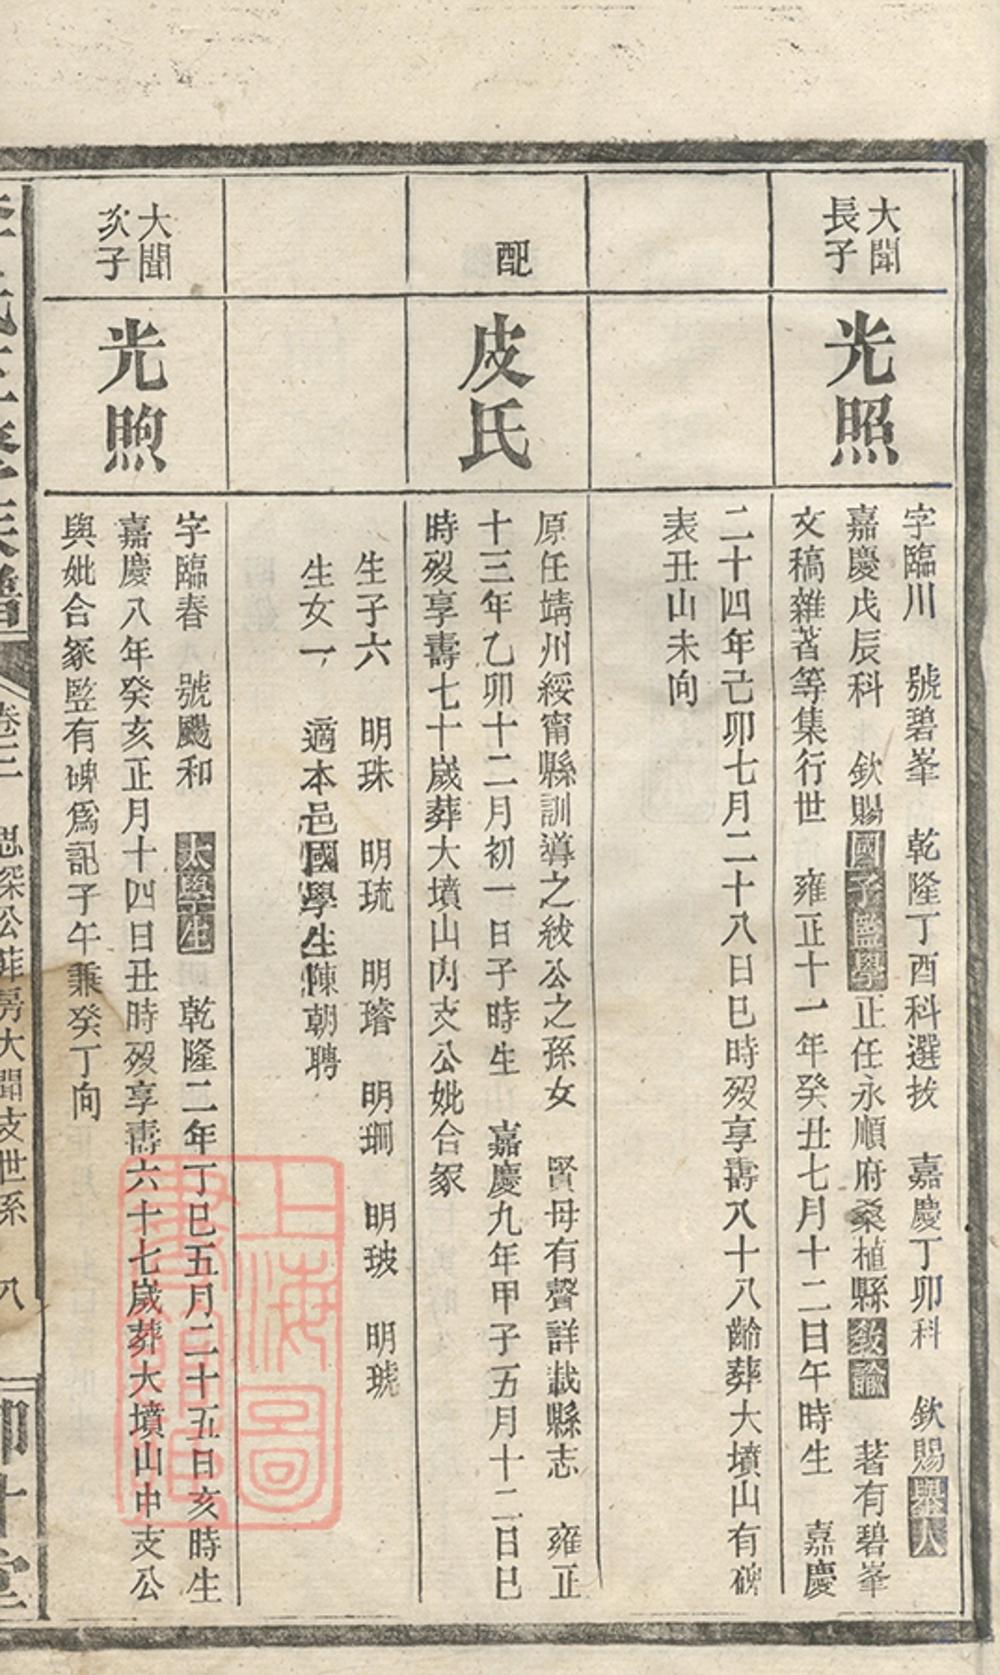 大聞
長子
光照
字臨川　號碧峯　乾隆丁酉科選拔　嘉慶丁卯科　欽賜舉人
嘉慶戊辰科　欽賜國子監學正任永順府桑植縣敎諭　著有碧峯
文稿雜著等集行世　雍正十一年癸丑七月十二日午時生　嘉慶
二十四年己卯七月二十八日巳時歿享壽八十八齡葬大墳山有碑
表丑山未向
配
皮氏
原任靖州綏甯縣訓導之紱公之孫女　賢母有聲詳載縣志　雍正
十三年乙卯十二月初一日子時生　嘉慶九年甲子五月十二日巳
時歿享壽七十歲葬大墳山內支公妣合冢
生子六　明珠　明琉　明璿　明琱　明玻　明琥
生女一　適本邑國學生陳朝聘
大聞
次子
光煦
字臨春　號颺和　太學生　乾隆二年丁巳五月二十五日亥時生
嘉慶八年癸亥正月十四日丑時歿享壽六十七歲葬大墳山中支公
與妣合冢監有碑爲記子午兼癸丁向
卷三　思深公非房大聞支世系　八
上海圖
書館藏